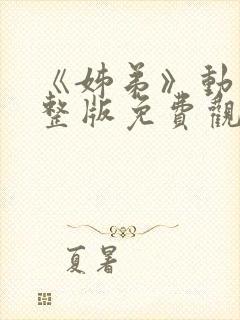 《姊弟》動
整版免費觀
夏暑